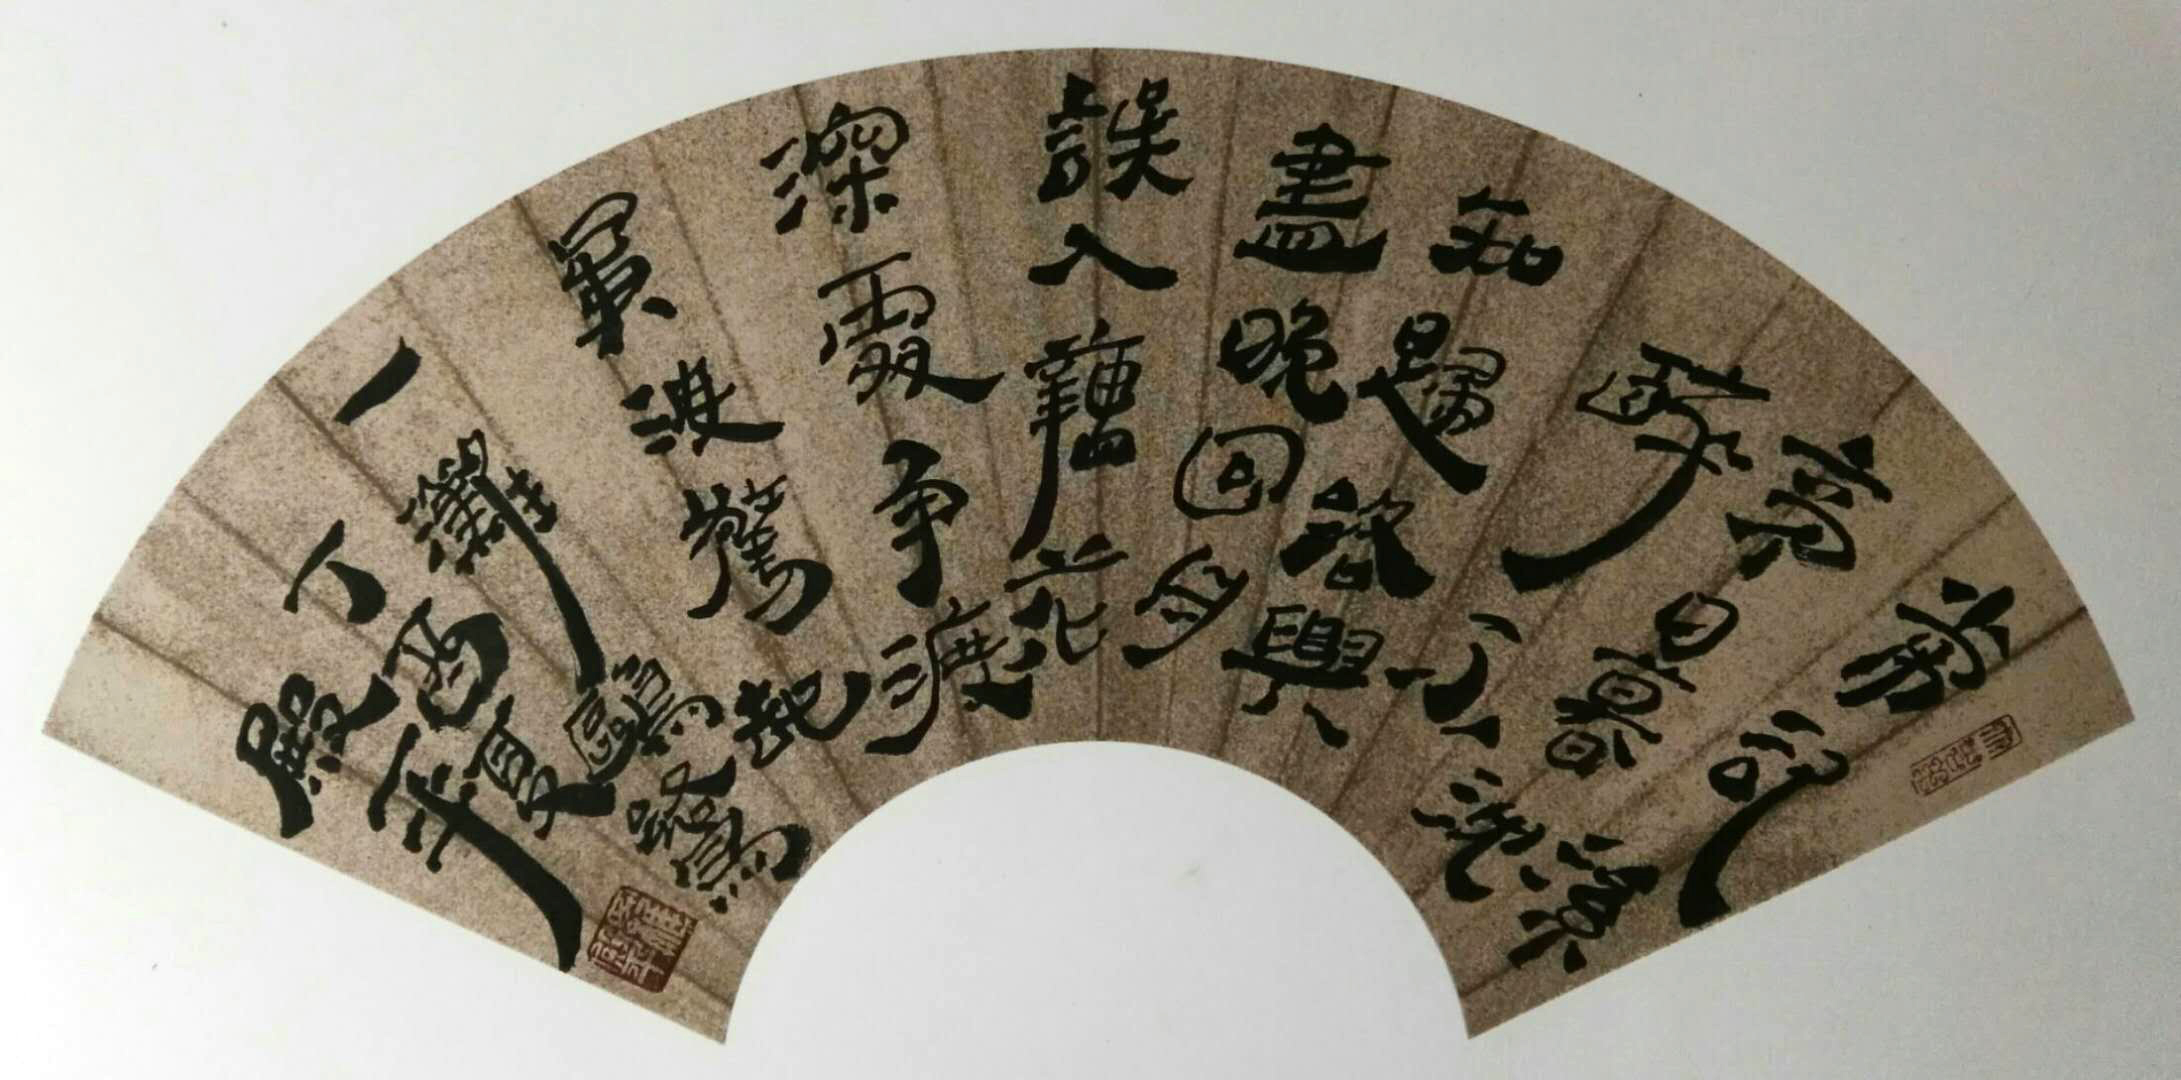 常記溪
亭日暮沈
醉不
知歸路興
盡晚回舟
誤入藕花
深處争渡
爭渡驚起
一灘鷗鷺
丁酉夏
殿平